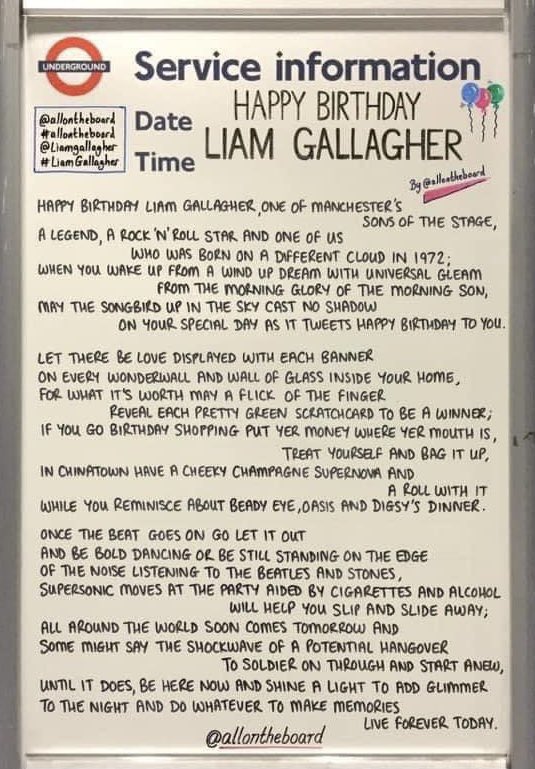 UNDERGROUND
Service information
@allontheboard
#allontheboard
@Liamgallagher
#LiamGallagher
Date
Time
HAPPY BIRTHDAY
LIAM GALLAGHER
By @allontheboard
HAPPY BIRTHDAY LIAM GALLAGHER, ONE OF MANCHESTER'S
SONS OF THE STAGE,
A LEGEND, A ROCK 'N' ROLL STAR AND ONE OF US
WHO WAS BORN ON A DIFFERENT CLOUD IN 1972;
WHEN YOU WAKE UP FROM A WIND UP DREAM WITH UNIVERSAL GLEAM
FROM THE MORNING GLORY OF THE MORNING SON,
MAY THE SONGBIRD UP IN THE SKY CAST NO SHADOW
ON YOUR SPECIAL DAY AS IT TWEETS HAPPY BIRTHDAY TO YOU.
LET THERE BE LOVE DISPLAYED WITH EACH BANNER
ON EVERY WONDERWALL AND WALL OF GLASS INSIDE YOUR HOME,
FOR WHAT IT'S WORTH MAY A FLICK OF THE FINGER
REVEAL EACH PRETTY GREEN SCRATCHCARD TO BE A WINNER;
IF YOU GO BIRTHDAY SHOPPING PUT YER MONEY WHERE YER MOUTH IS,
TREAT YOURSELF AND BAG IT UP,
IN CHINATOWN HAVE A CHEEKY CHAMPAGNE SUPERNOVA AND
A ROLL WITH IT
WHILE YOU REMINISCE ABOUT BEADY EYE, OASIS AND DIGSY'S DINNER.
ONCE THE BEAT GOES ON GO LET IT OUT
AND BE BOLD DANCING OR BE STILL STANDING ON THE EDGE
OF THE NOISE LISTENING TO THE BEATLES AND STONES,
SUPERSONIC MOVES AT THE PARTY AIDED BY CIGARETTES AND ALCOHOL
WILL HELP YOU SLIP AND SLIDE AWAY;
ALL AROUND THE WORLD SOON COMES TOMORROW AND
SOME MIGHT SAY THE SHOCKWAVE OF A POTENTIAL HANGOVER
TO SOLDIER ON THROUGH AND START ANEW,
UNTIL IT DOES, BE HERE NOW AND SHINE A LIGHT TO ADD GLIMMER
TO THE NIGHT AND DO WHATEVER TO MAKE MEMORIES
LIVE FOREVER TODAY.
@allontheboard